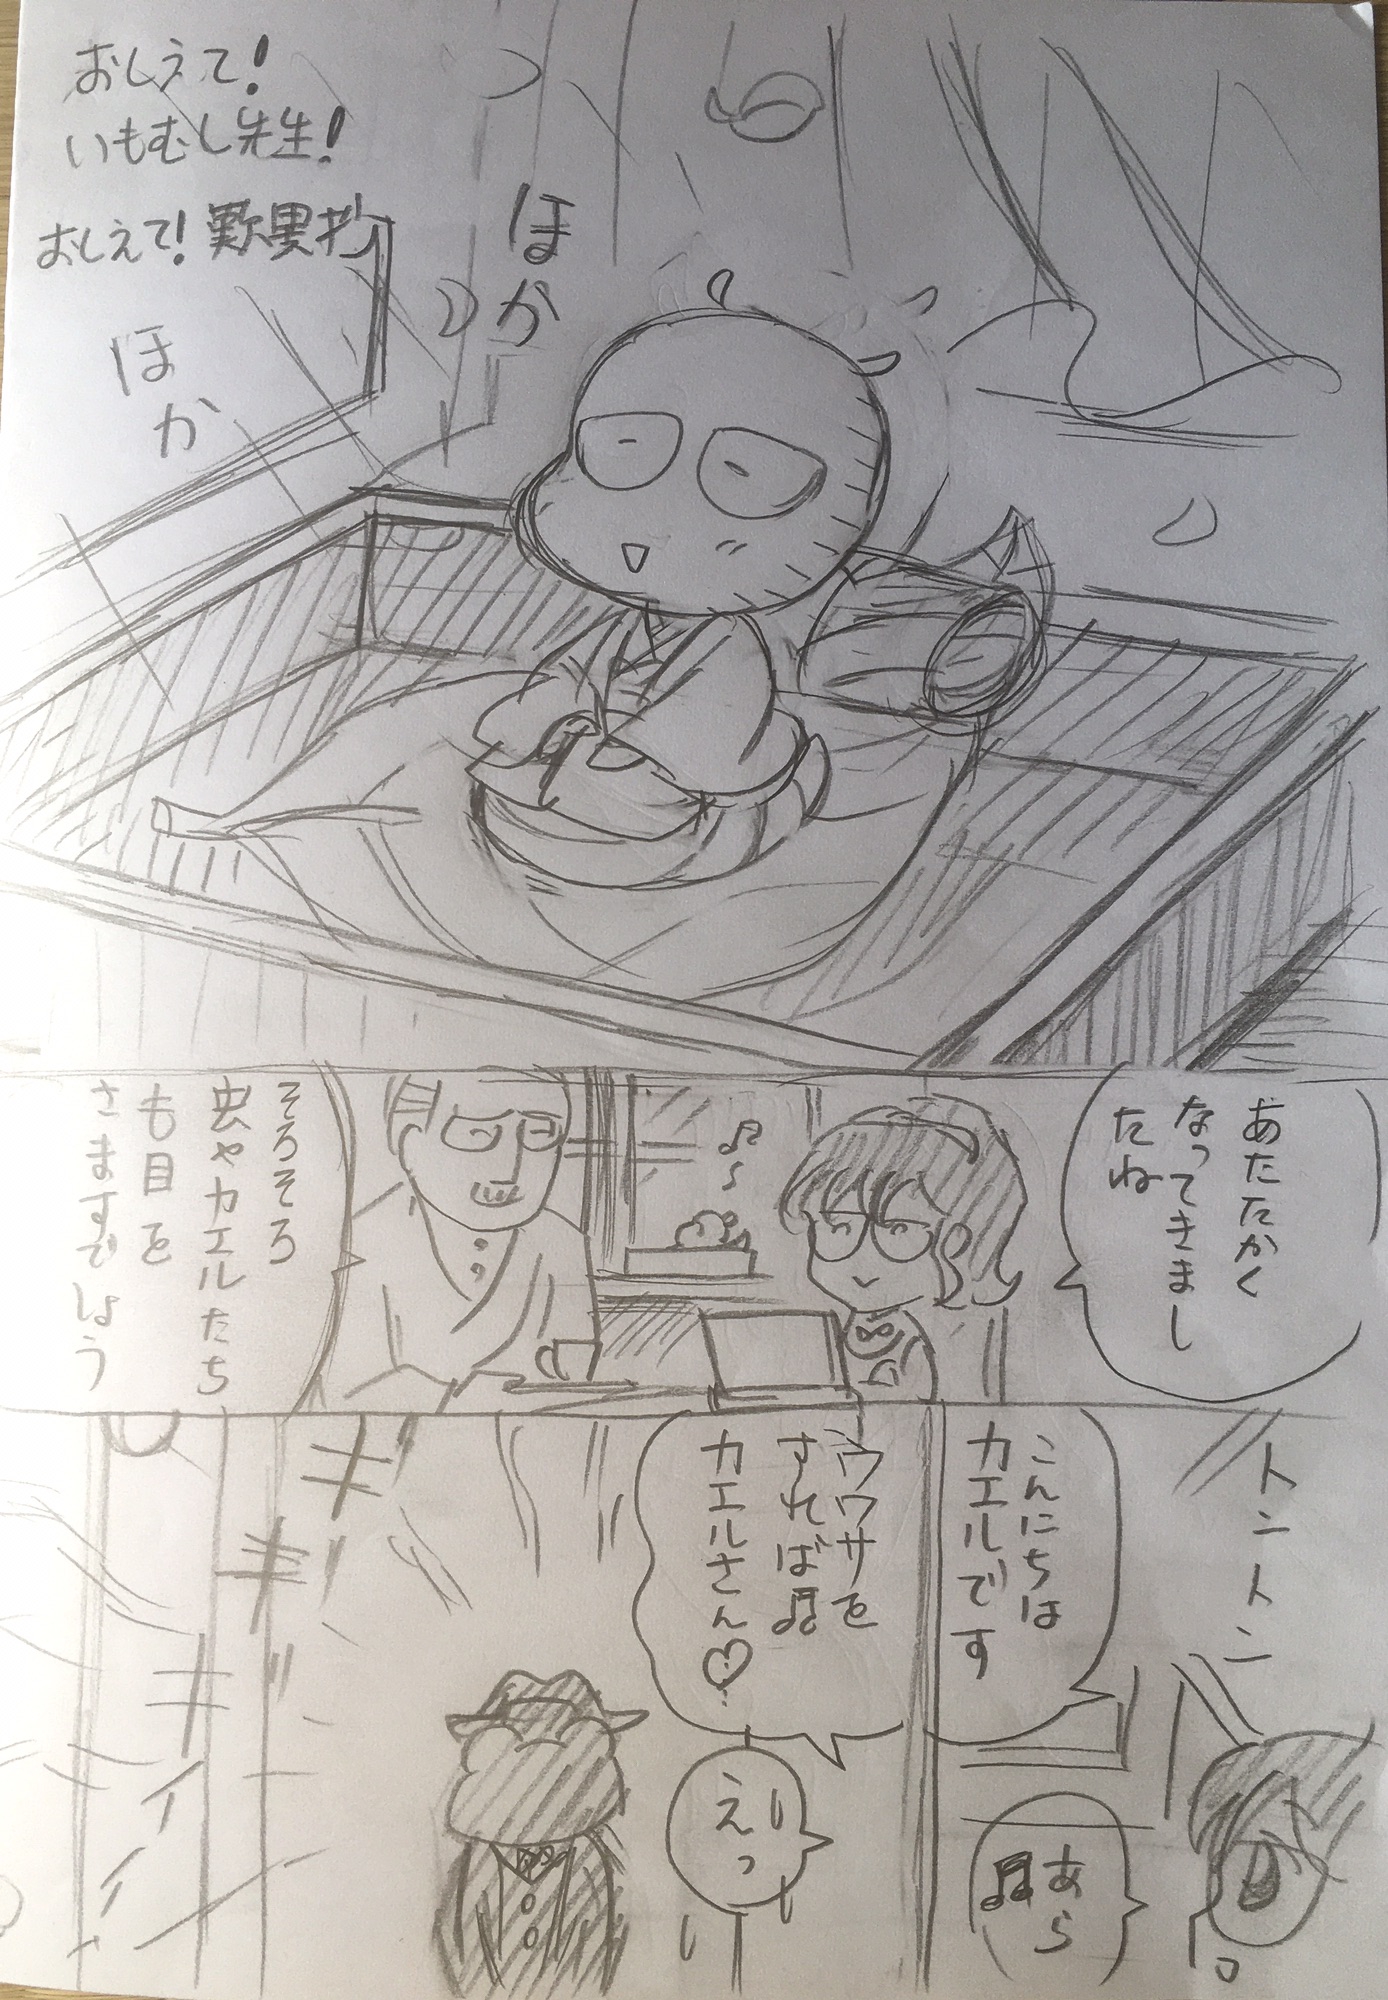 おしえて!
いもむし先生!
おしえて!
ほか
ほか
あたたかく
なってきまし
たね
そろそろ
虫やカエルたち
も目を
さますでしょう
トントン
こんにちは
カエルです
あら♬
ウワサを
すれば♬
カエルさん♡
えっ
キキキイイ